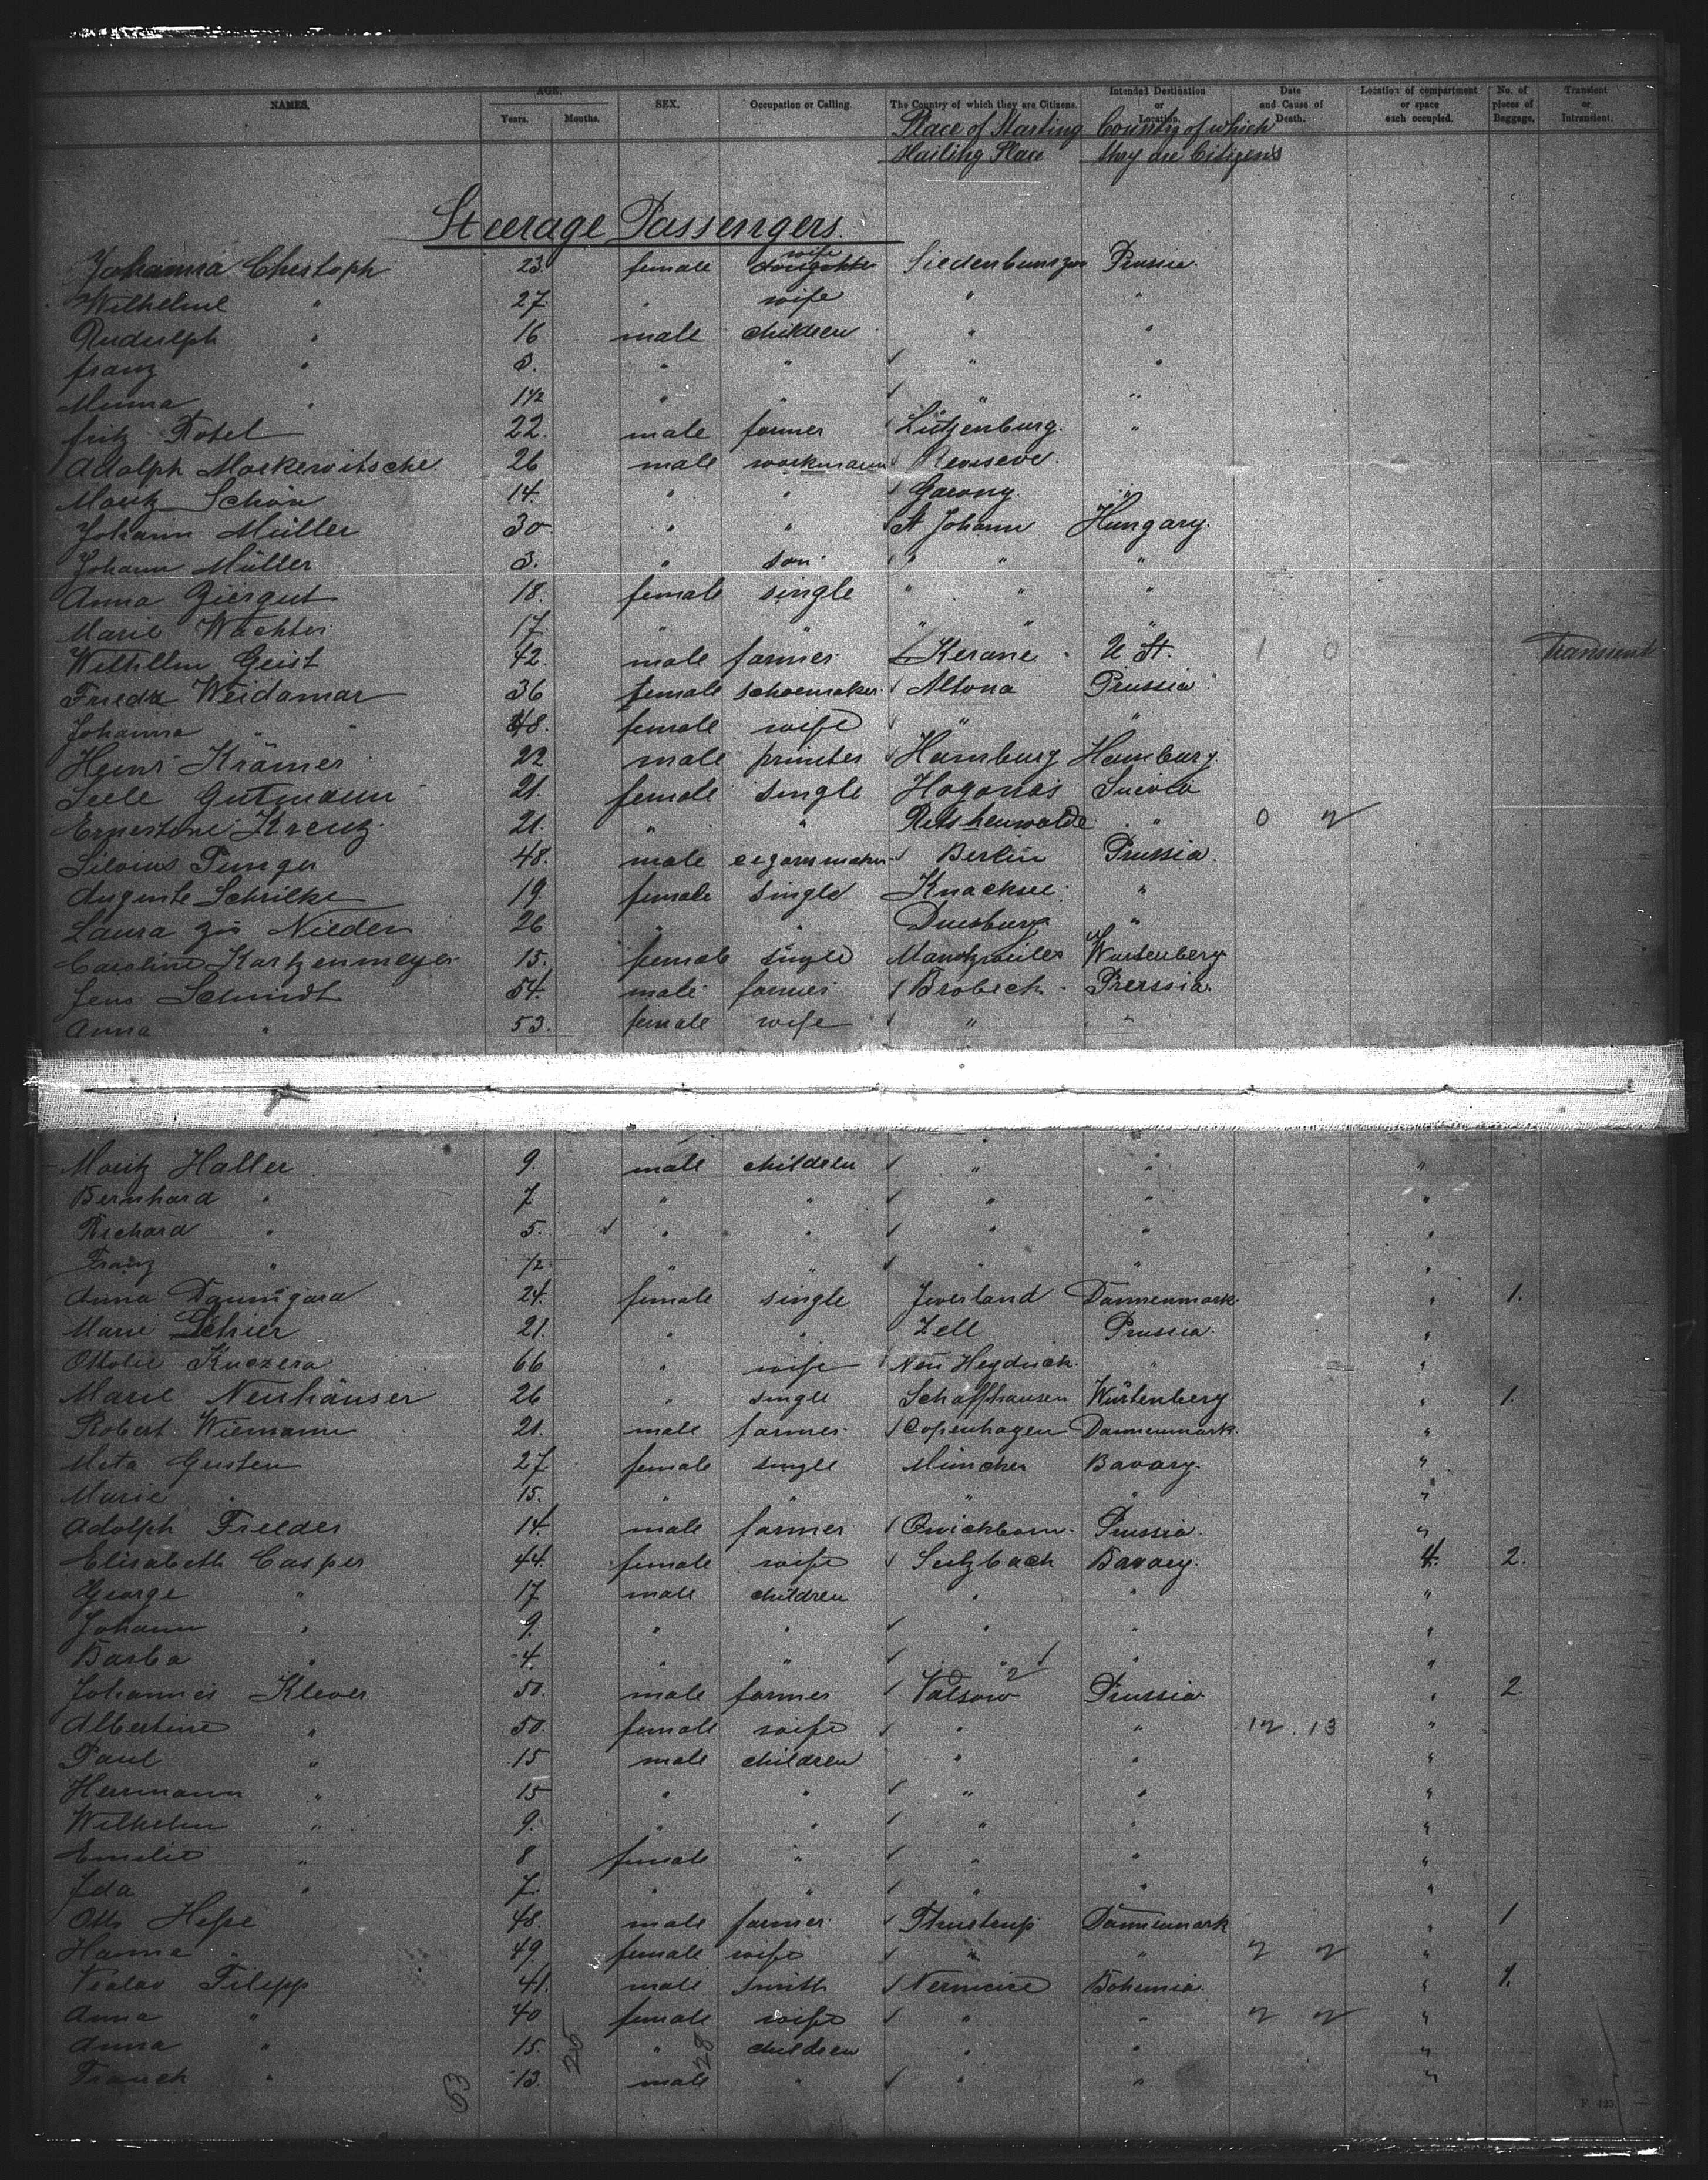 NAMES. AGE. Years. Months. SEX. Occupation or Calling The Country of which they are Citizens. Intended Destination or Location. Date and Cause of Death. Location of compartment or space each occupied. No. of pieces of Baggage. Transient or Intransient.
Place of Starting Country of which
Hailing Place they are Citizens
Steerage Passengers.
Johanna Christoph 23. female wife Prussia.
Wilhelm " 27. " wife " "
Rudulph " 16 male children " "
franz " 3. " " " "
Minna " 1 1/2 " " " "
fritz Rotel 22. male farmer Lützenburg. "
Adolph Moskewitsche 26 male workmann
Moritz Schön 14. " " Garony. "
Johann Müller 30. " " St Johann Hungary.
Johann Müller 3. " son " " "
Anna Ziergut 18. female single " " "
Marie Wachter 17. " " " " "
Wilhelm Geist 42. male farmer Kerane U. St. 1 0 Transient
Friedr Weidamar 36 female schoemaker Altona Prussia
Johanna " 48. female wife " "
Heinr Krämer 22 male printer Hamburg Hamburg.
Seele Gutmann 21. female single Hoganas
Ernestine Kreuz. 21. " " " 0 2
Silvius Punger 48. male cigarrmaker Berlin Prussia.
Auguste Schrilke 19. female single Knacksee "
Laura zur Nieden 26 " " Duesburg "
Caroline Kartzenmeyer 15. female single Wurtenberg
Jens Schmidt 54. male farmer Brobeck Prerssia.
Anna " 53. female wife " "
Moritz Haller 9. male children " " "
Bernhard " 7 " " " " "
Richard " 5. " " " " "
Franz " 1/2 " " " " "
Anna Daumgara 24. female single Jverland Dannenmark. " 1.
Marie Schier 21. " " Zell Prussia. "
Ottolie Kuczera 66 " wife Neu Heyduck. " "
Marie Neuhäuser 26 " single Schaffhausen Würtenberg. " 1.
Robert Wiemann 21. male farmer Copenhagen Dannenmark. "
Meta Gersten 27 female single München Bavary. "
Marie " 15. " " " " "
Adolph Frelder 14. male farmer Quickborn. Prussia. "
Elisabeth Casper 44. female wife Sulzbach Bavary. 4. 2.
George " 17 male children " " "
Johann " 9. " " " " "
Barba " 4. " " " " "
Johannes Klever 50. male farmer Valsow 2 Prussia " 2
Albertine " 50. female wife " " 12. 13 "
Paul " 15 male children " " "
Herrmann " 15 " " " " "
Wilhelm " 9. " " " " "
Emilie " 8 female " " " "
Ida " 7. " " " " "
Otto Hesse 48. male farmer Dannenmark " 1
Hanna " 49 female wife " " 2 2 "
Filipp 41. male smith Bohemia. " 1.
Anna " 40 female wife " " 2 2 "
Anna " 15. " children " " "
Franck " 13. male " " " "
53 25 28
F. 425.